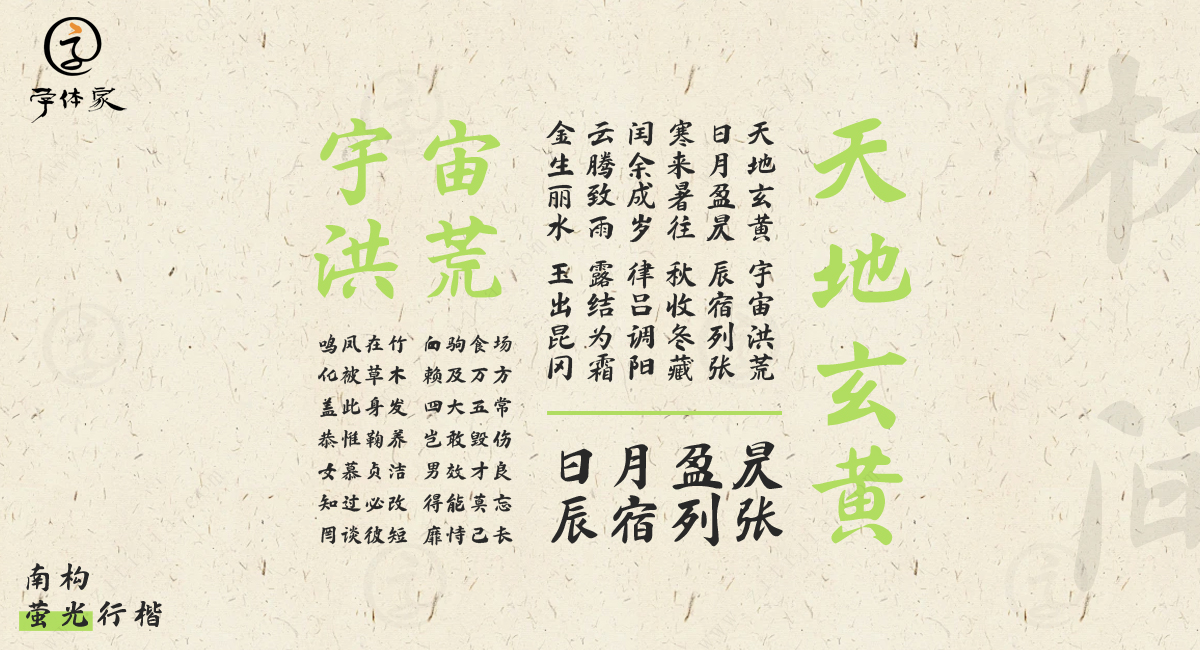 字体家
天地玄黄
宇宙
洪荒
天地玄黄 宇宙洪荒
日月盈昃 辰宿列张
寒来暑往 秋收冬藏
闰余成岁 律吕调阳
云腾致雨 露结为霜
金生丽水 玉出昆冈
鸣凤在竹 向驹食场
化被草木 赖及万方
盖此身发 四大五常
恭惟鞠养 岂敢毁伤
女慕贞洁 男效才良
知过必改 得能莫忘
罔谈彼短 靡恃己长
日月盈昃
辰宿列张
南构
萤光行楷